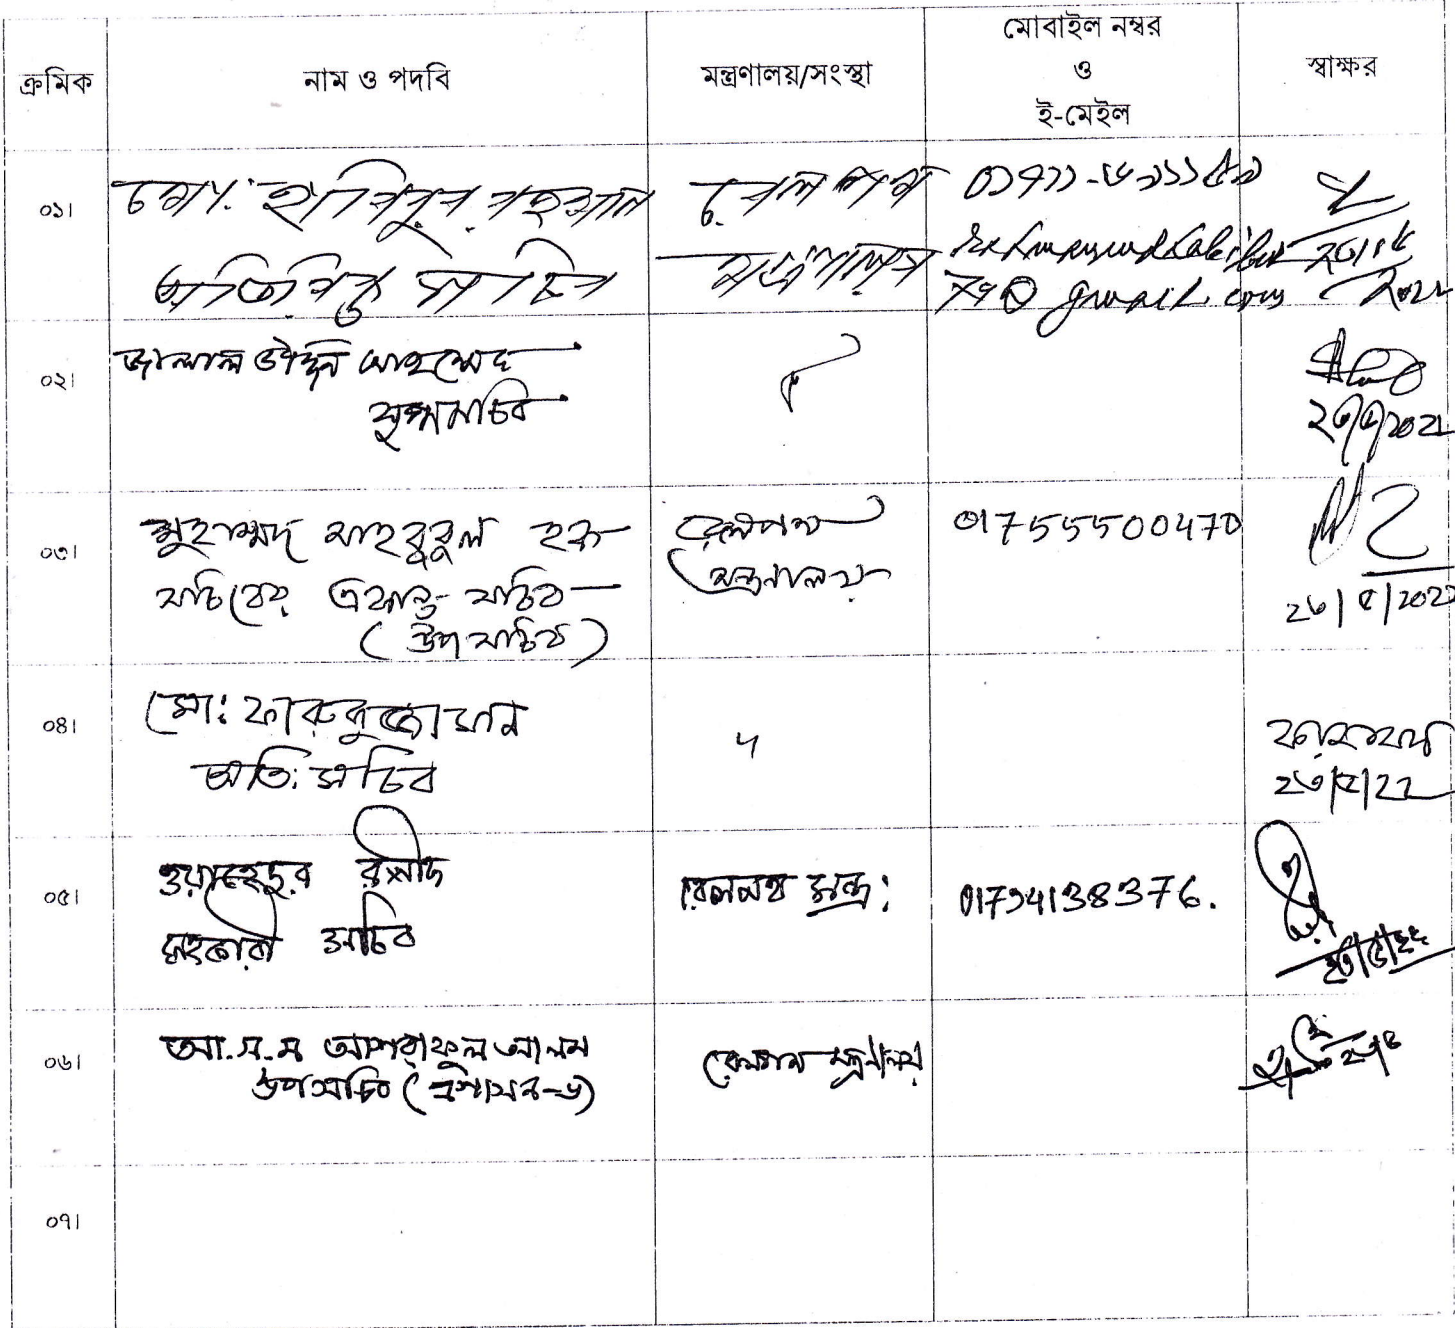 ক্রমিক
নাম ও পদবি
মন্ত্রণালয়/সংস্থা
মোবাইল নম্বর
ও
ই-মেইল
স্বাক্ষর
০১।
মো: হাবিবুর রহমান
অতিরিক্ত সচিব
রেলপথ
মন্ত্রণালয়
gmail.com
০২।
জালাল উদ্দিন আহম্মেদ
যুগ্মসচিব
০৩।
মুহাম্মদ মাহবুবুল হক
সচিবের একান্ত সচিব
(উপসচিব)
রেলপথ
মন্ত্রণালয়
01755500470
২৬/৫/২০২২
০৪।
মো: ফারুকুজ্জামান
অতি: সচিব
২৬/৫/২২
০৫।
ওয়াহেদুর রশীদ
সহকারী সচিব
রেলপথ মন্ত্র:
০৬।
আ.স.ম আশরাফুল আলম
উপসচিব (প্রশাসন-৬)
রেলপথ মন্ত্রণালয়
০৭।